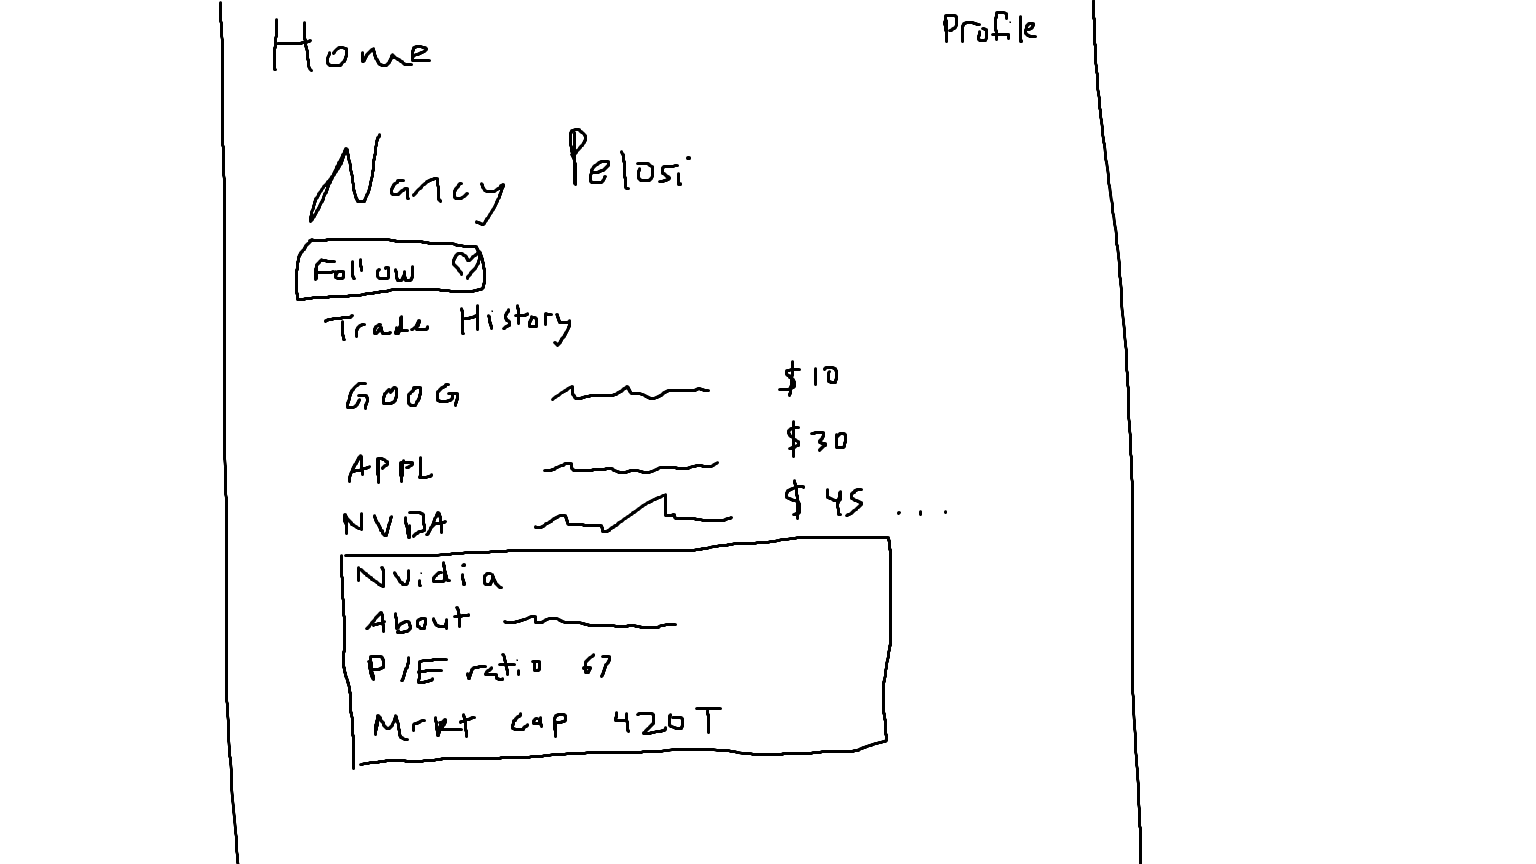 Home Profile
Nancy Pelosi
Follow
Trade History
GOOG $10
APPL $30
NVDA $45 ...
Nvidia
About
P/E ratio 67
Mrkt cap 420T